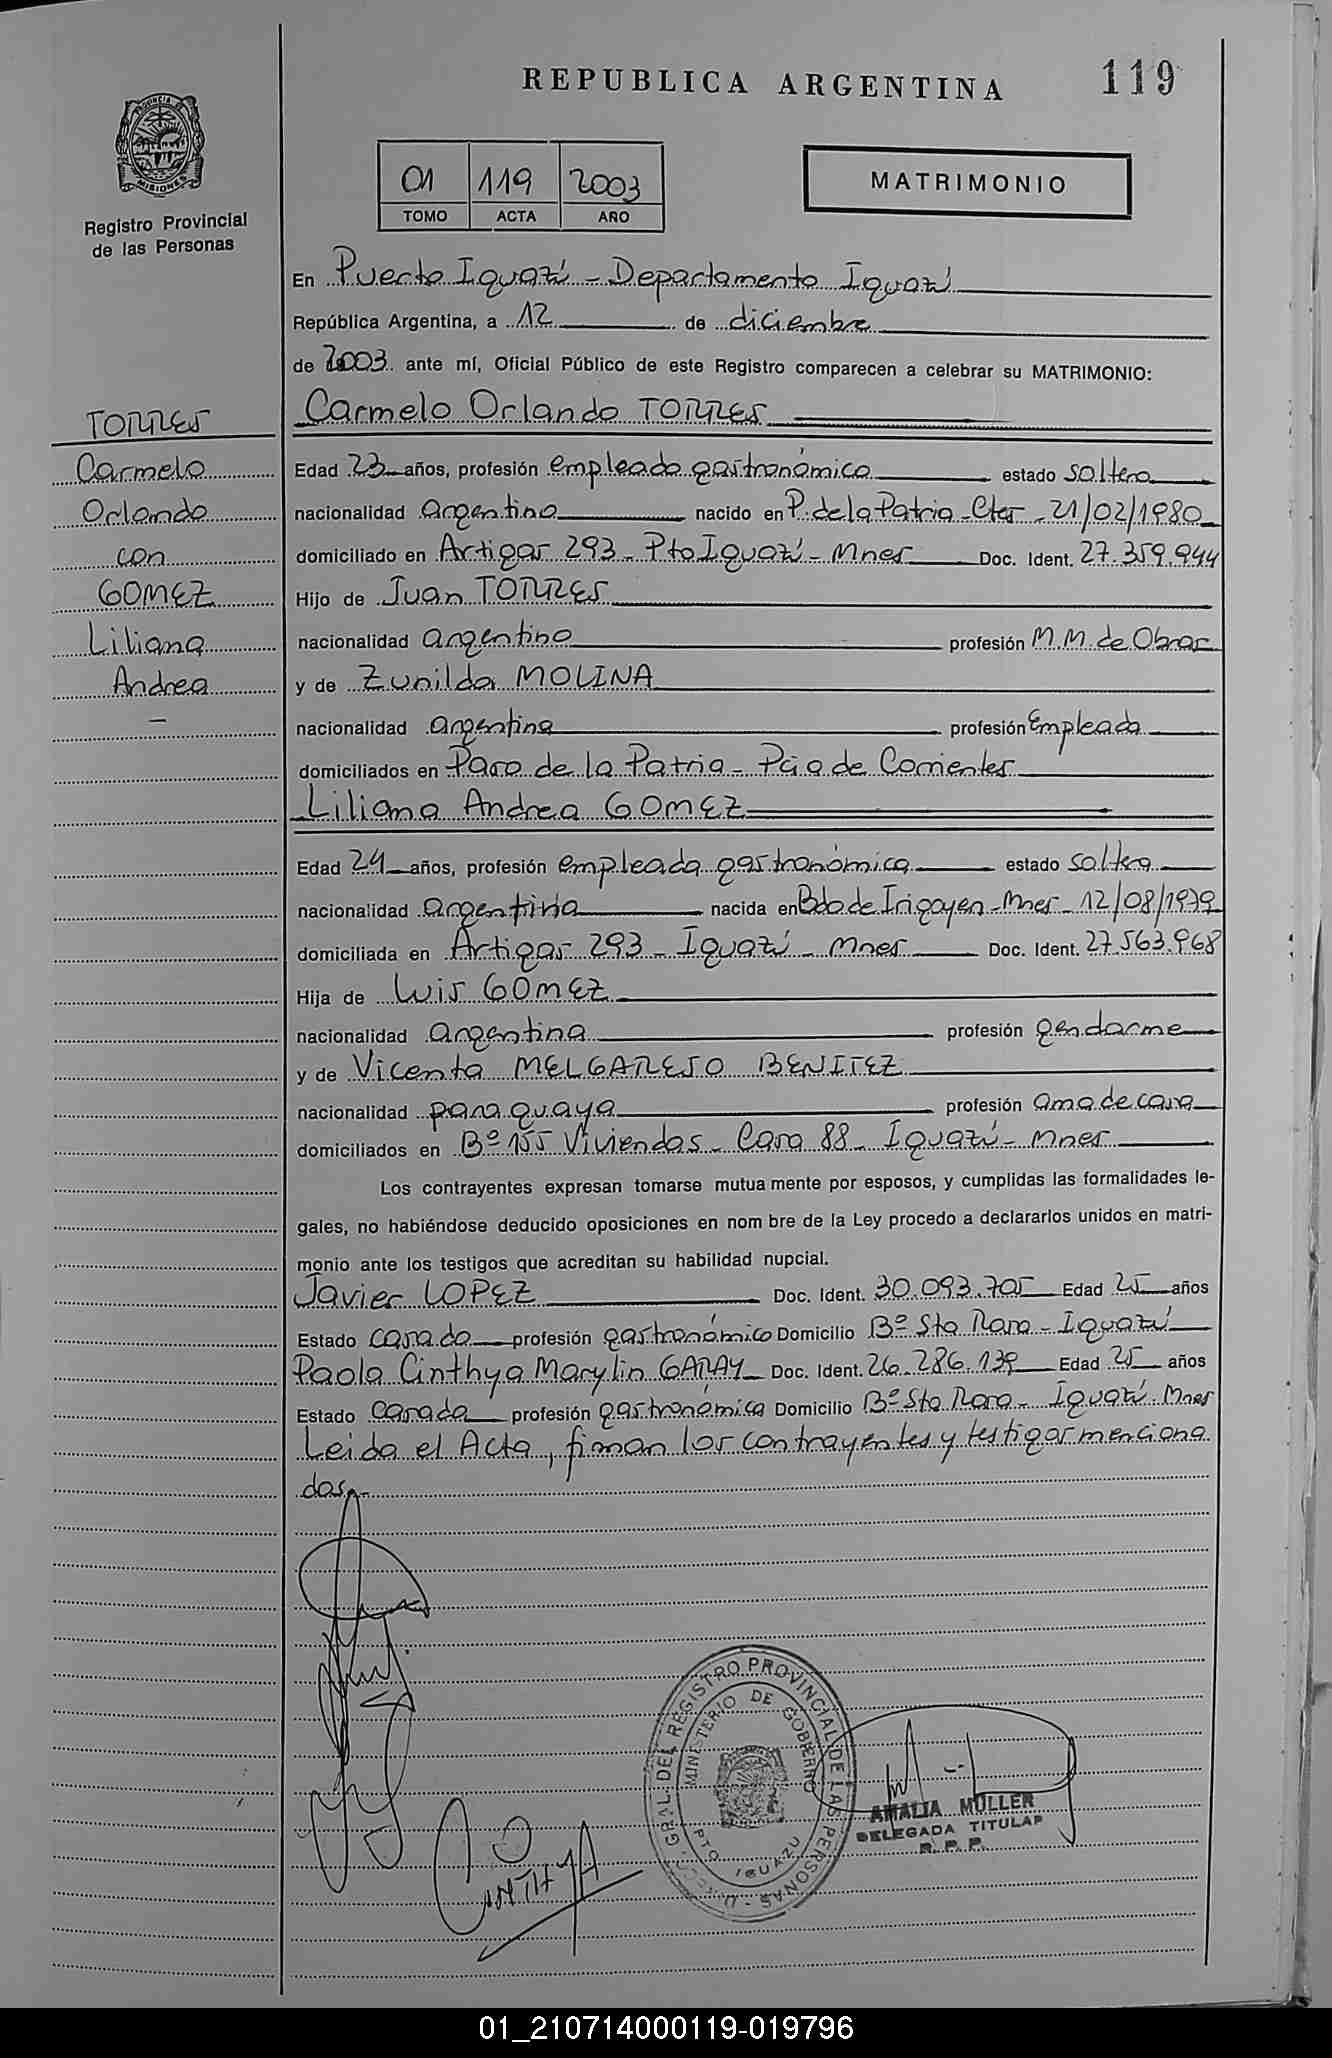 REPUBLICA ARGENTINA
119
PROVINCIA DE
MISIONES
Registro Provincial
de las Personas
01 119 2003
TOMO ACTA AÑO
MATRIMONIO
En Puerto Iguazú - Departamento Iguazú
República Argentina, a 12 de diciembre
de 2003 ante mí, Oficial Público de este Registro comparecen a celebrar su MATRIMONIO:
Carmelo Orlando TORRES
TORRES
Carmelo
Orlando
con
GOMEZ
Liliana
Andrea
Edad 23 años, profesión empleado gastronómico estado soltero
nacionalidad argentino nacido en P. de la Patria - Ctes - 21/02/1980
domiciliado en Artigas 293 - Pto Iguazú - Mnes Doc. Ident. 27.359.944
Hijo de Juan TORRES
nacionalidad argentino profesión M.M. de Obras
y de Zunilda MOLINA
nacionalidad argentina profesión Empleada
domiciliados en Paso de la Patria - Pcia de Corrientes
Liliana Andrea GOMEZ
Edad 24 años, profesión empleada gastronómica estado soltera
nacionalidad argentina nacida en Bdo de Irigoyen - Mnes - 12/08/1979
domiciliada en Artigas 293 - Iguazú - Mnes Doc. Ident. 27.563.968
Hija de Luis GOMEZ
nacionalidad argentina profesión gendarme
y de Vicenta MELGAREJO BENITEZ
nacionalidad paraguaya profesión ama de casa
domiciliados en Bº 155 Viviendas - Casa 88 - Iguazú - Mnes
Los contrayentes expresan tomarse mutua mente por esposos, y cumplidas las formalidades le-
gales, no habiéndose deducido oposiciones en nom bre de la Ley procedo a declararlos unidos en matri-
monio ante los testigos que acreditan su habilidad nupcial.
Javier LOPEZ Doc. Ident. 30.093.705 Edad 25 años
Estado casado profesión gastronómico Domicilio Bº Sta Rosa - Iguazú
Paola Cinthya Marylin GARAY Doc. Ident. 26.286.139 Edad 25 años
Estado casada profesión gastronómica Domicilio Bº Sta Rosa - Iguazú - Mnes
Leida el Acta, firman los contrayentes y testigos menciona
dos.-
GRAL. DEL REGISTRO PROVINCIAL DE LAS PERSONAS
MINISTERIO DE GOBIERNO
PTO IGUAZU
CINTHYA
AMALIA MULLER
DELEGADA TITULAR
R. P. P.
01_210714000119-019796